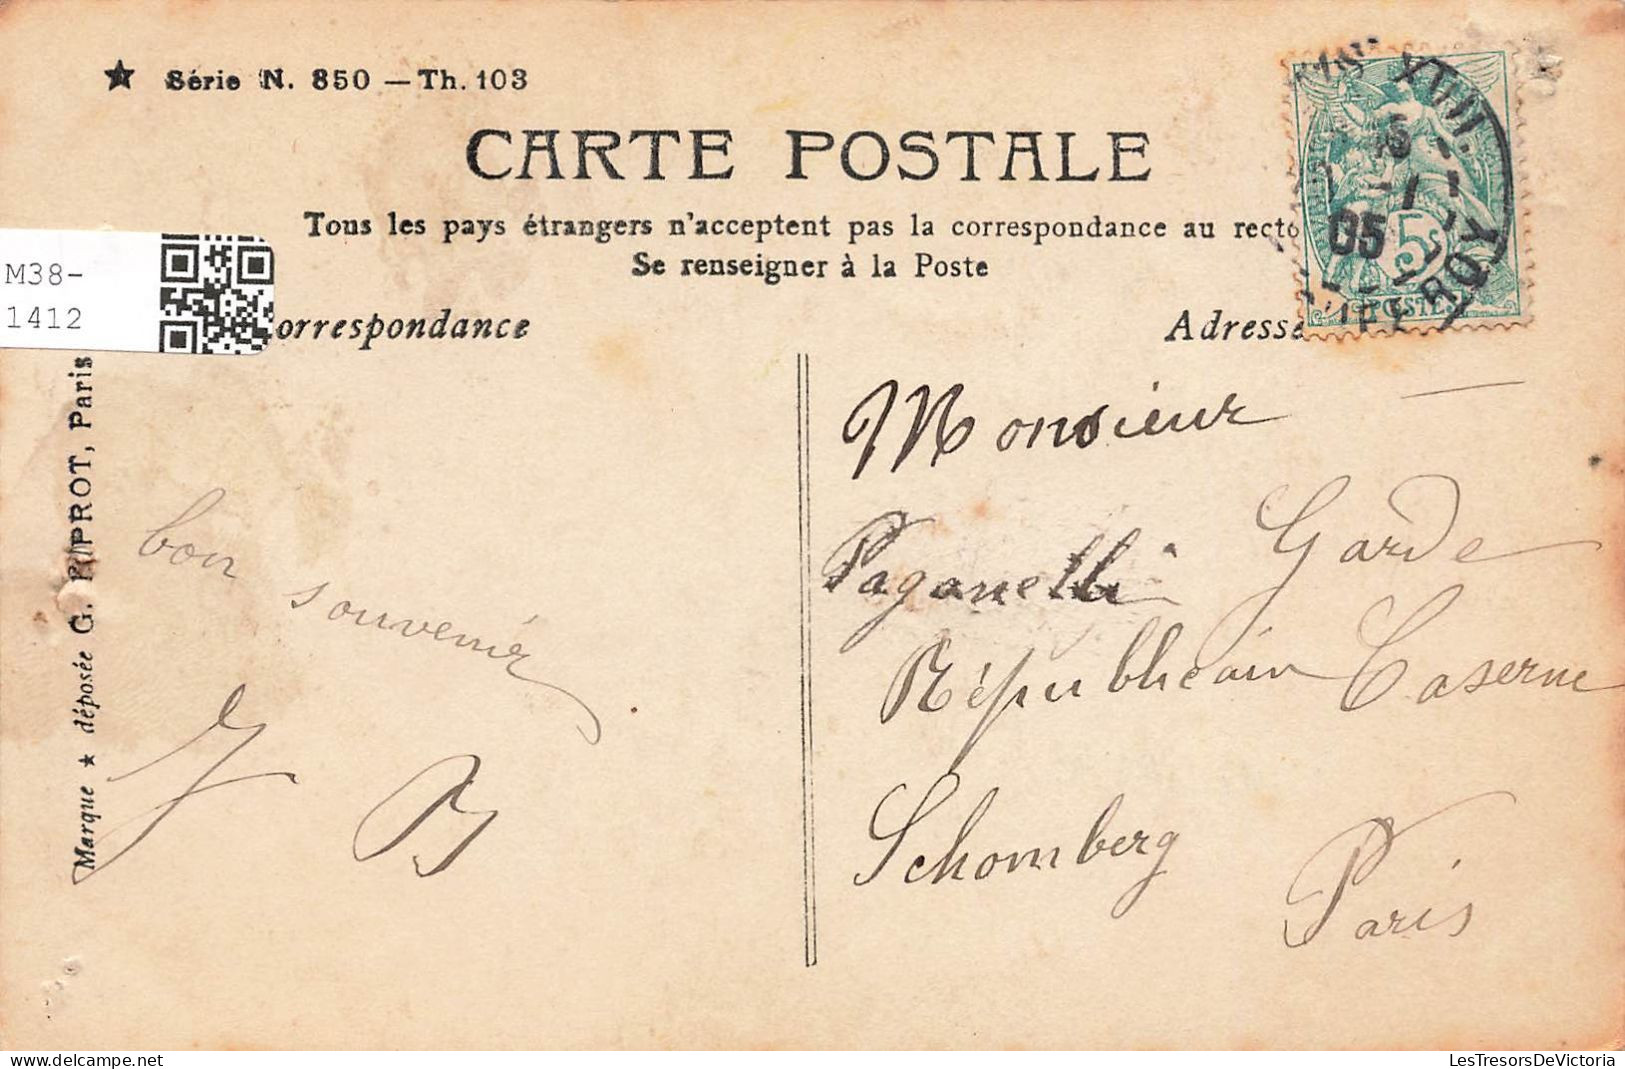 ★ Série N. 850 — Th. 103
CARTE POSTALE
Tous les pays étrangers n'acceptent pas la correspondance au recto
Se renseigner à la Poste
M38-
1412
orrespondance
Adresse
Marque ★ déposée G. PIPROT, Paris
bon
souvenir
J B
Monsieur
Paganelli Garde
Républicain Caserne
Schomberg
Paris
05
5c
POSTES
LesTresorsDeVictoria
www.delcampe.net